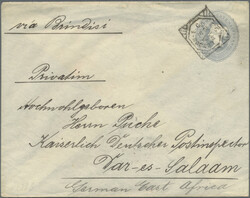 via Brindisi
Privatim
Hochwohlgeboren
Herrn Puche
Kaiserlich Deutscher Postinspector
Dar-es-Salaam
German East Africa